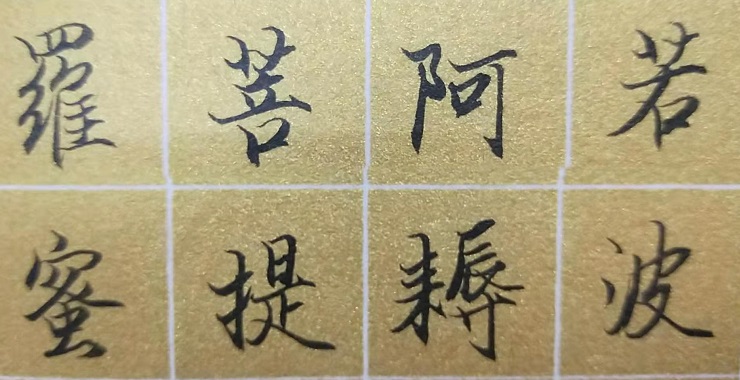 若波
阿耨
菩提
羅蜜